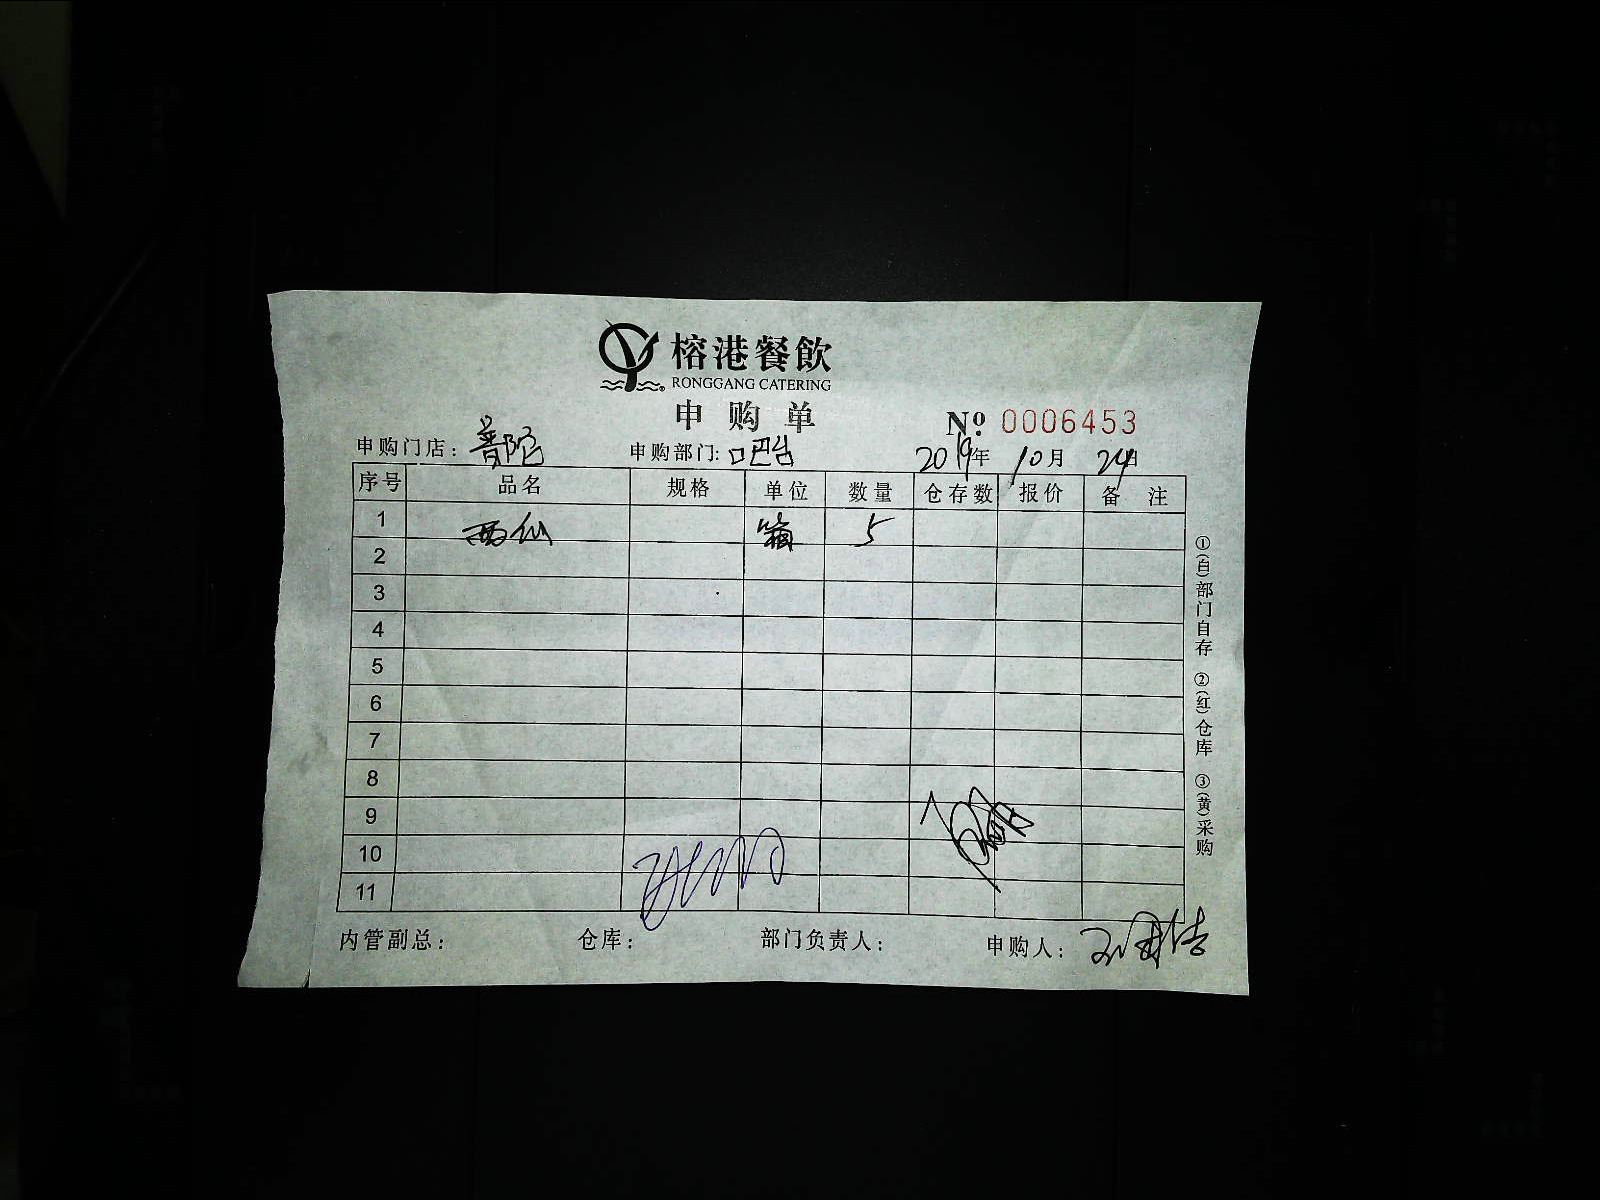 榕港餐飲
RONGGANG CATERING
申购单
№ 0006453
申购门店：普陀 申购部门：吧台 2019年10月24日
序号 品名 规格 单位 数量 仓存数 报价 备注
1 西仙 箱 5
2
3
4
5
6
7
8
9
10
11
内管副总： 仓库： 部门负责人： 申购人：
①(白)部门自存 ②(红)仓库 ③(黄)采购